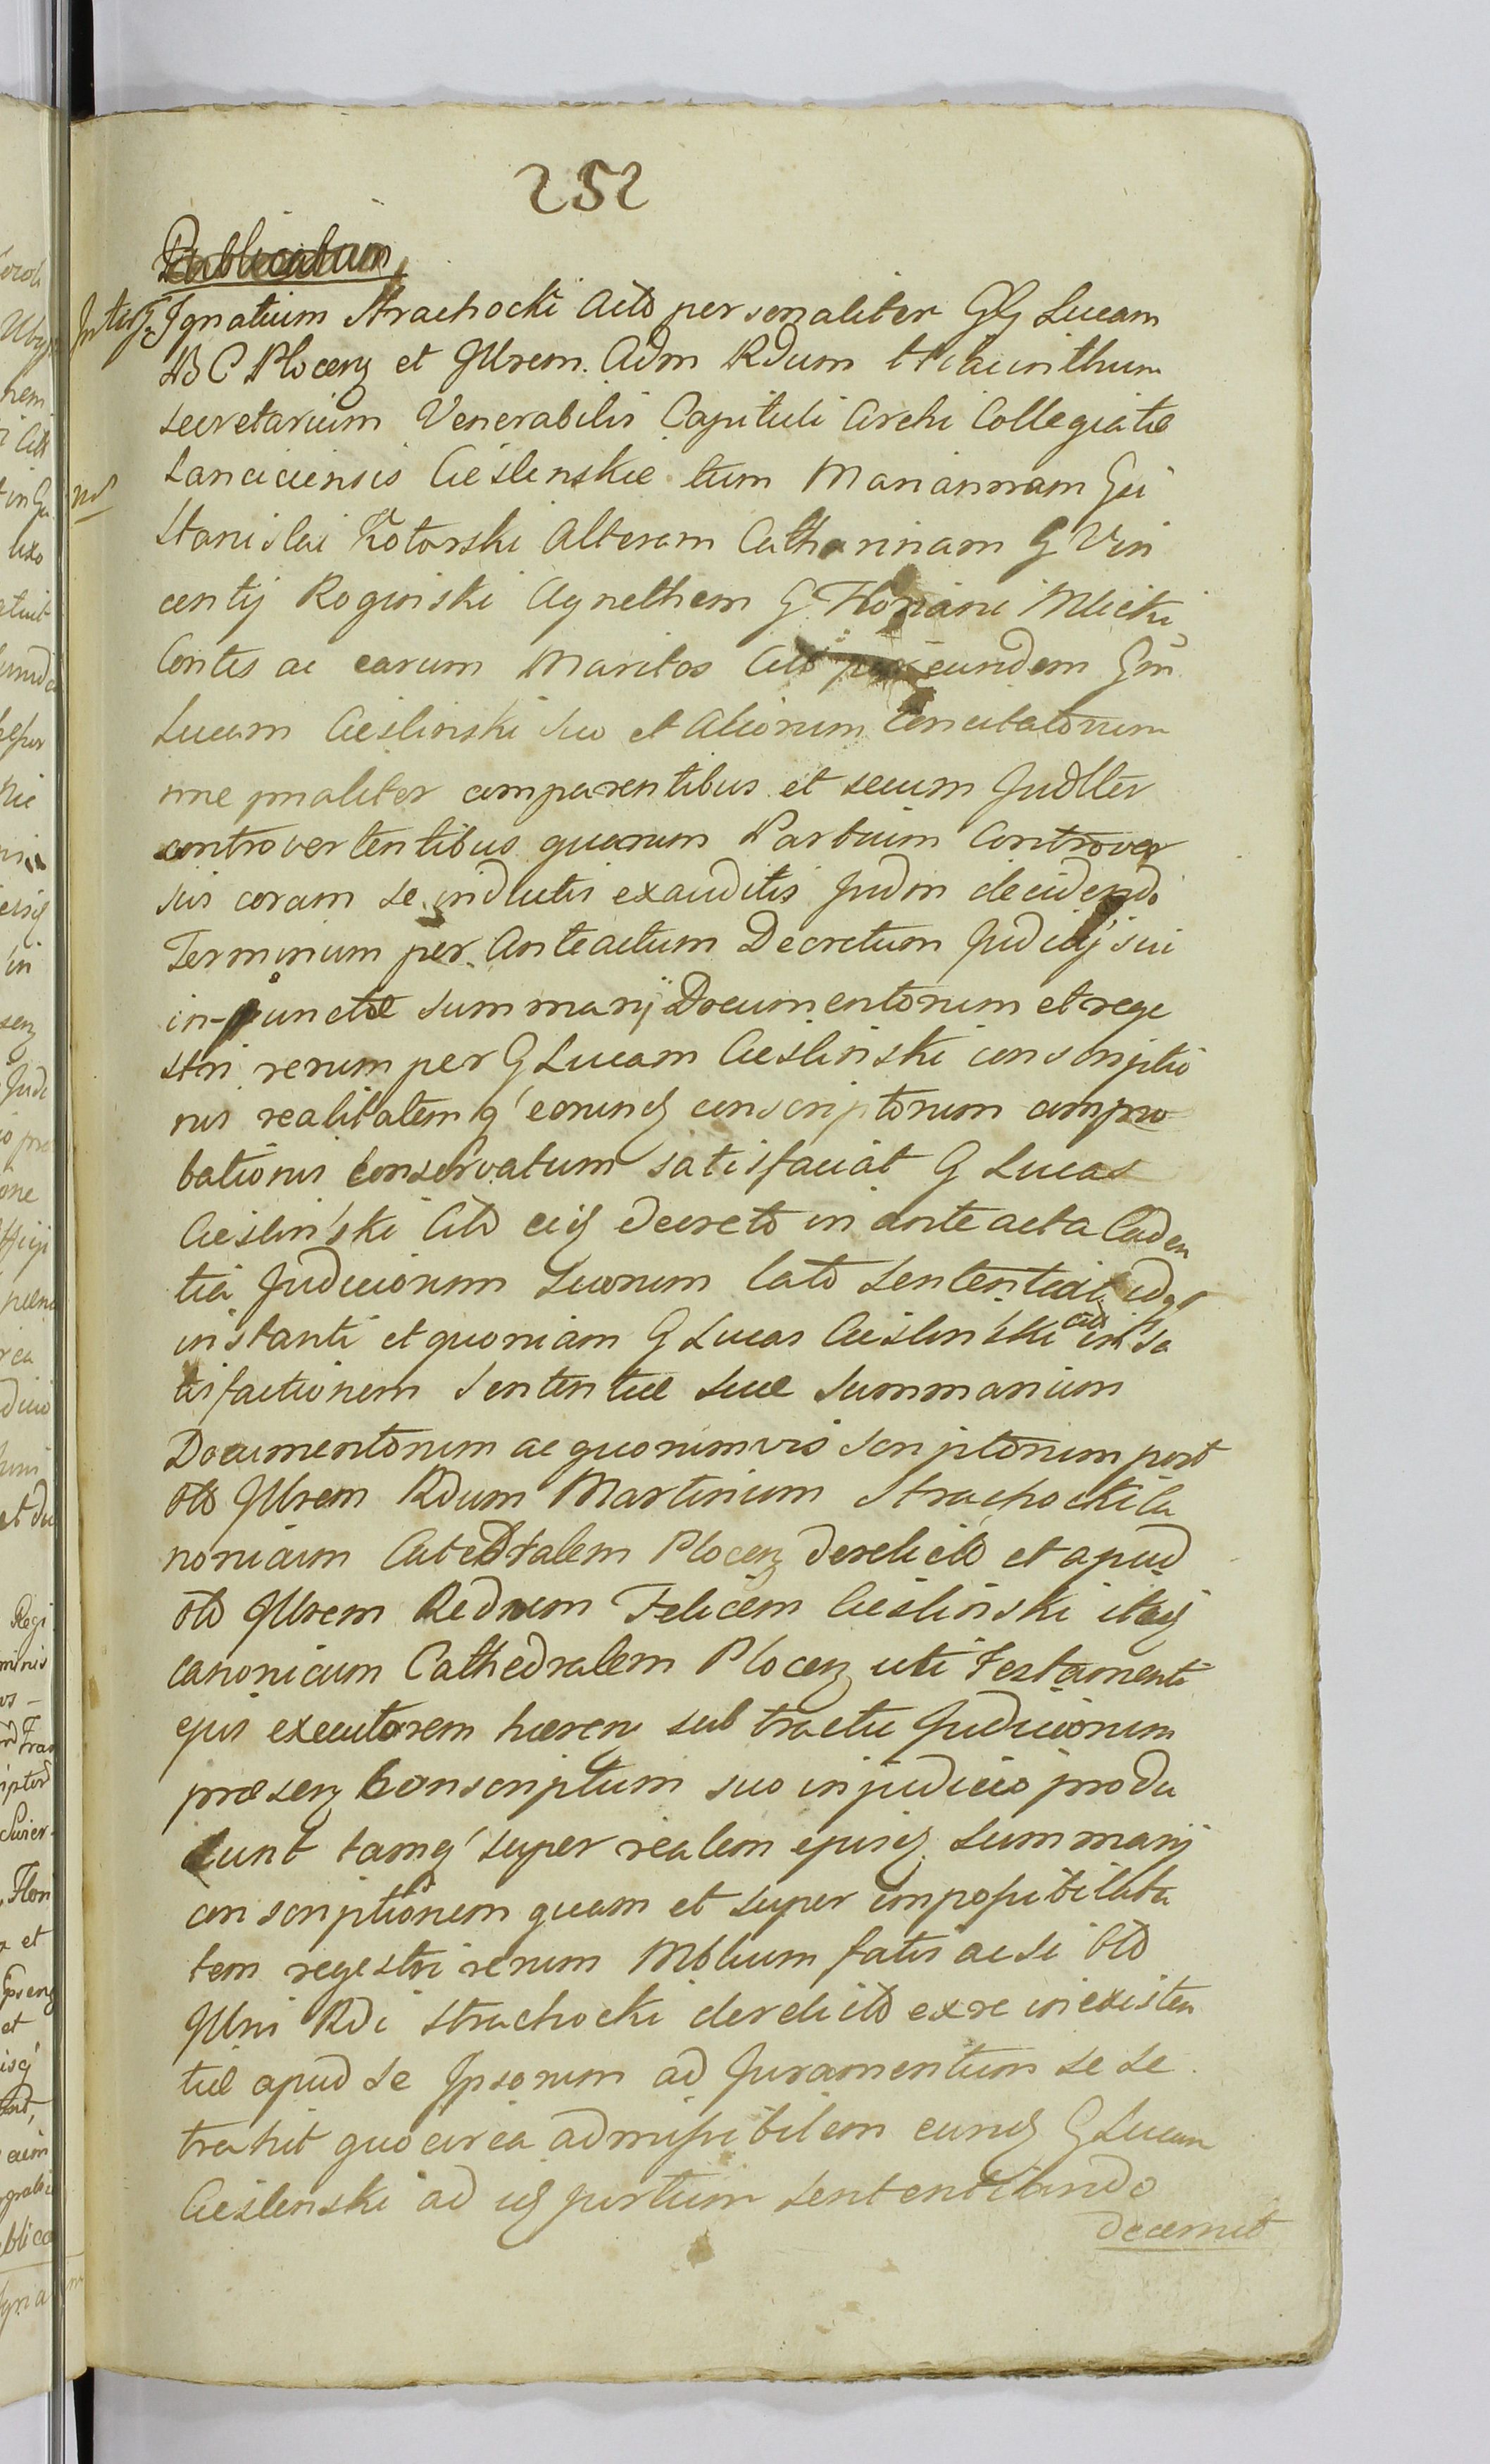 252
Publicatum
Inter G Ignatium Strachocki Act͠o personaliter GG Lucam
B C Plocenȝ et Illrem. Adm Rdum Hiacinthum
secretarium Venerabilis Capituli Archi Collegiatæ
Lanciciensis Cieślenskie tum Mariannam Gsi
nos
Stanislai Kotarski Alteram Catharinam G Vin
centij Roginski Agnethem G. Floriani Mlicki
Contes ac earum Maritos Citt per eundem Gm
Lucam Cieślinski suo et Aliorum Concitatorum
nne pnaliter comparentibus et secum Judllr
controvertentibus quarum Partium Controver
siis coram se inductis exauditis Judm decidendo
Terminum per Anteactum Decretum Judicij sui
in-punctæ summarij Documentorum et rege
stri rerum per G Lucam Cieslinski conscriptio
nis realitatemq eorunq conscriptorum compro
bationis conservatum satisfaciat G Lucas
Cieslinski Citt eiq decreto in ante acta Caden
tia Judiciorum suorum lato sententiat idq
instanti et quoniam G Lucas Cieslinski citt in sa
tisfactionem sententiæ suæ summarium
Documentorum ac quorumvis scriptorum post
olo Illrem Rdum Martinum Strachocki Ca
nonicum Catedralem Plocenȝ derelicto et apud
olo Illrem Redrum Felicem Cieślinski itq
canonicum Cathedralem Plocenȝ uti Testamenti
ejus executorem hæren sub tractu Judiciorum
præsenȝ conscriptum suo in judicio produ
cunt tamq super realem ejusq summarij
conscriptionem quam et super impossibilita
tem regestri rerum Mblium fatis acsi olo
Illris Rdi Strachocki derelicto ex re inexisten
tiæ apud se Ipsorum ad Juramentum se se
trahit quocirca admissibilem eunq G Lucam
Cieslenski ad iq jurtum sententiando
decernit